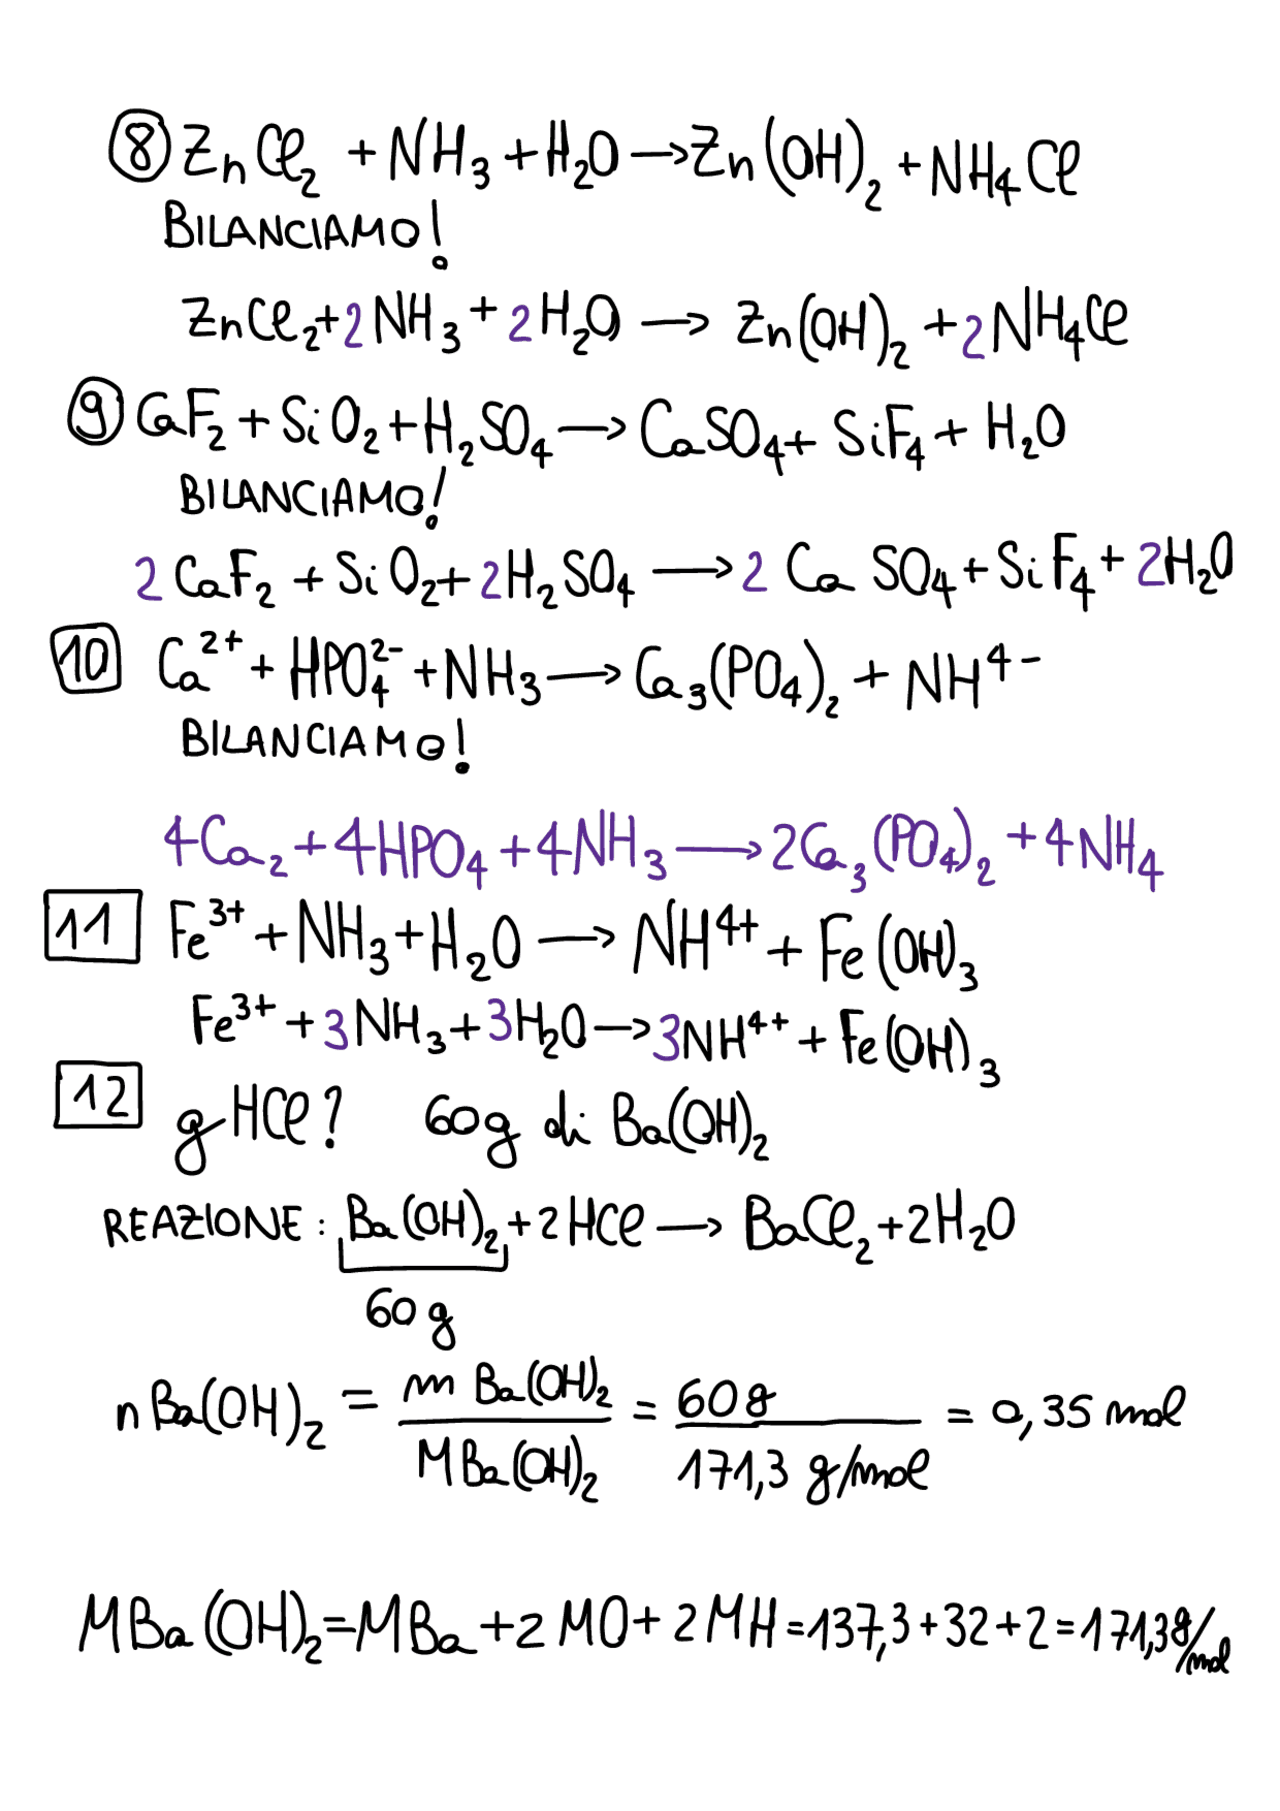 ⑧ ZnCl₂ + NH₃ + H₂O → Zn(OH)₂ + NH₄Cl
BILANCIAMO!
ZnCl₂ + 2NH₃ + 2H₂O → Zn(OH)₂ + 2NH₄Cl
⑨ CaF₂ + SiO₂ + H₂SO₄ → CaSO₄ + SiF₄ + H₂O
BILANCIAMO!
2 CaF₂ + SiO₂ + 2H₂SO₄ → 2 CaSO₄ + SiF₄ + 2H₂O
10 Ca²⁺ + HPO₄²⁻ + NH₃ → Ca₃(PO₄)₂ + NH⁴⁻
BILANCIAMO!
4Ca₂ + 4HPO₄ + 4NH₃ → 2Ca₃(PO₄)₂ + 4NH₄
11 Fe³⁺ + NH₃ + H₂O → NH⁴⁺ + Fe(OH)₃
Fe³⁺ + 3NH₃ + 3H₂O → 3NH⁴⁺ + Fe(OH)₃
12 g HCl? 60g di Ba(OH)₂
REAZIONE: Ba(OH)₂ + 2HCl → BaCl₂ + 2H₂O
60g
nBa(OH)₂ = m Ba(OH)₂ / MBa(OH)₂ = 60g / 171,3 g/mol = 0,35 mol
MBa(OH)₂ = MBa + 2MO + 2MH = 137,3 + 32 + 2 = 171,3g/mol